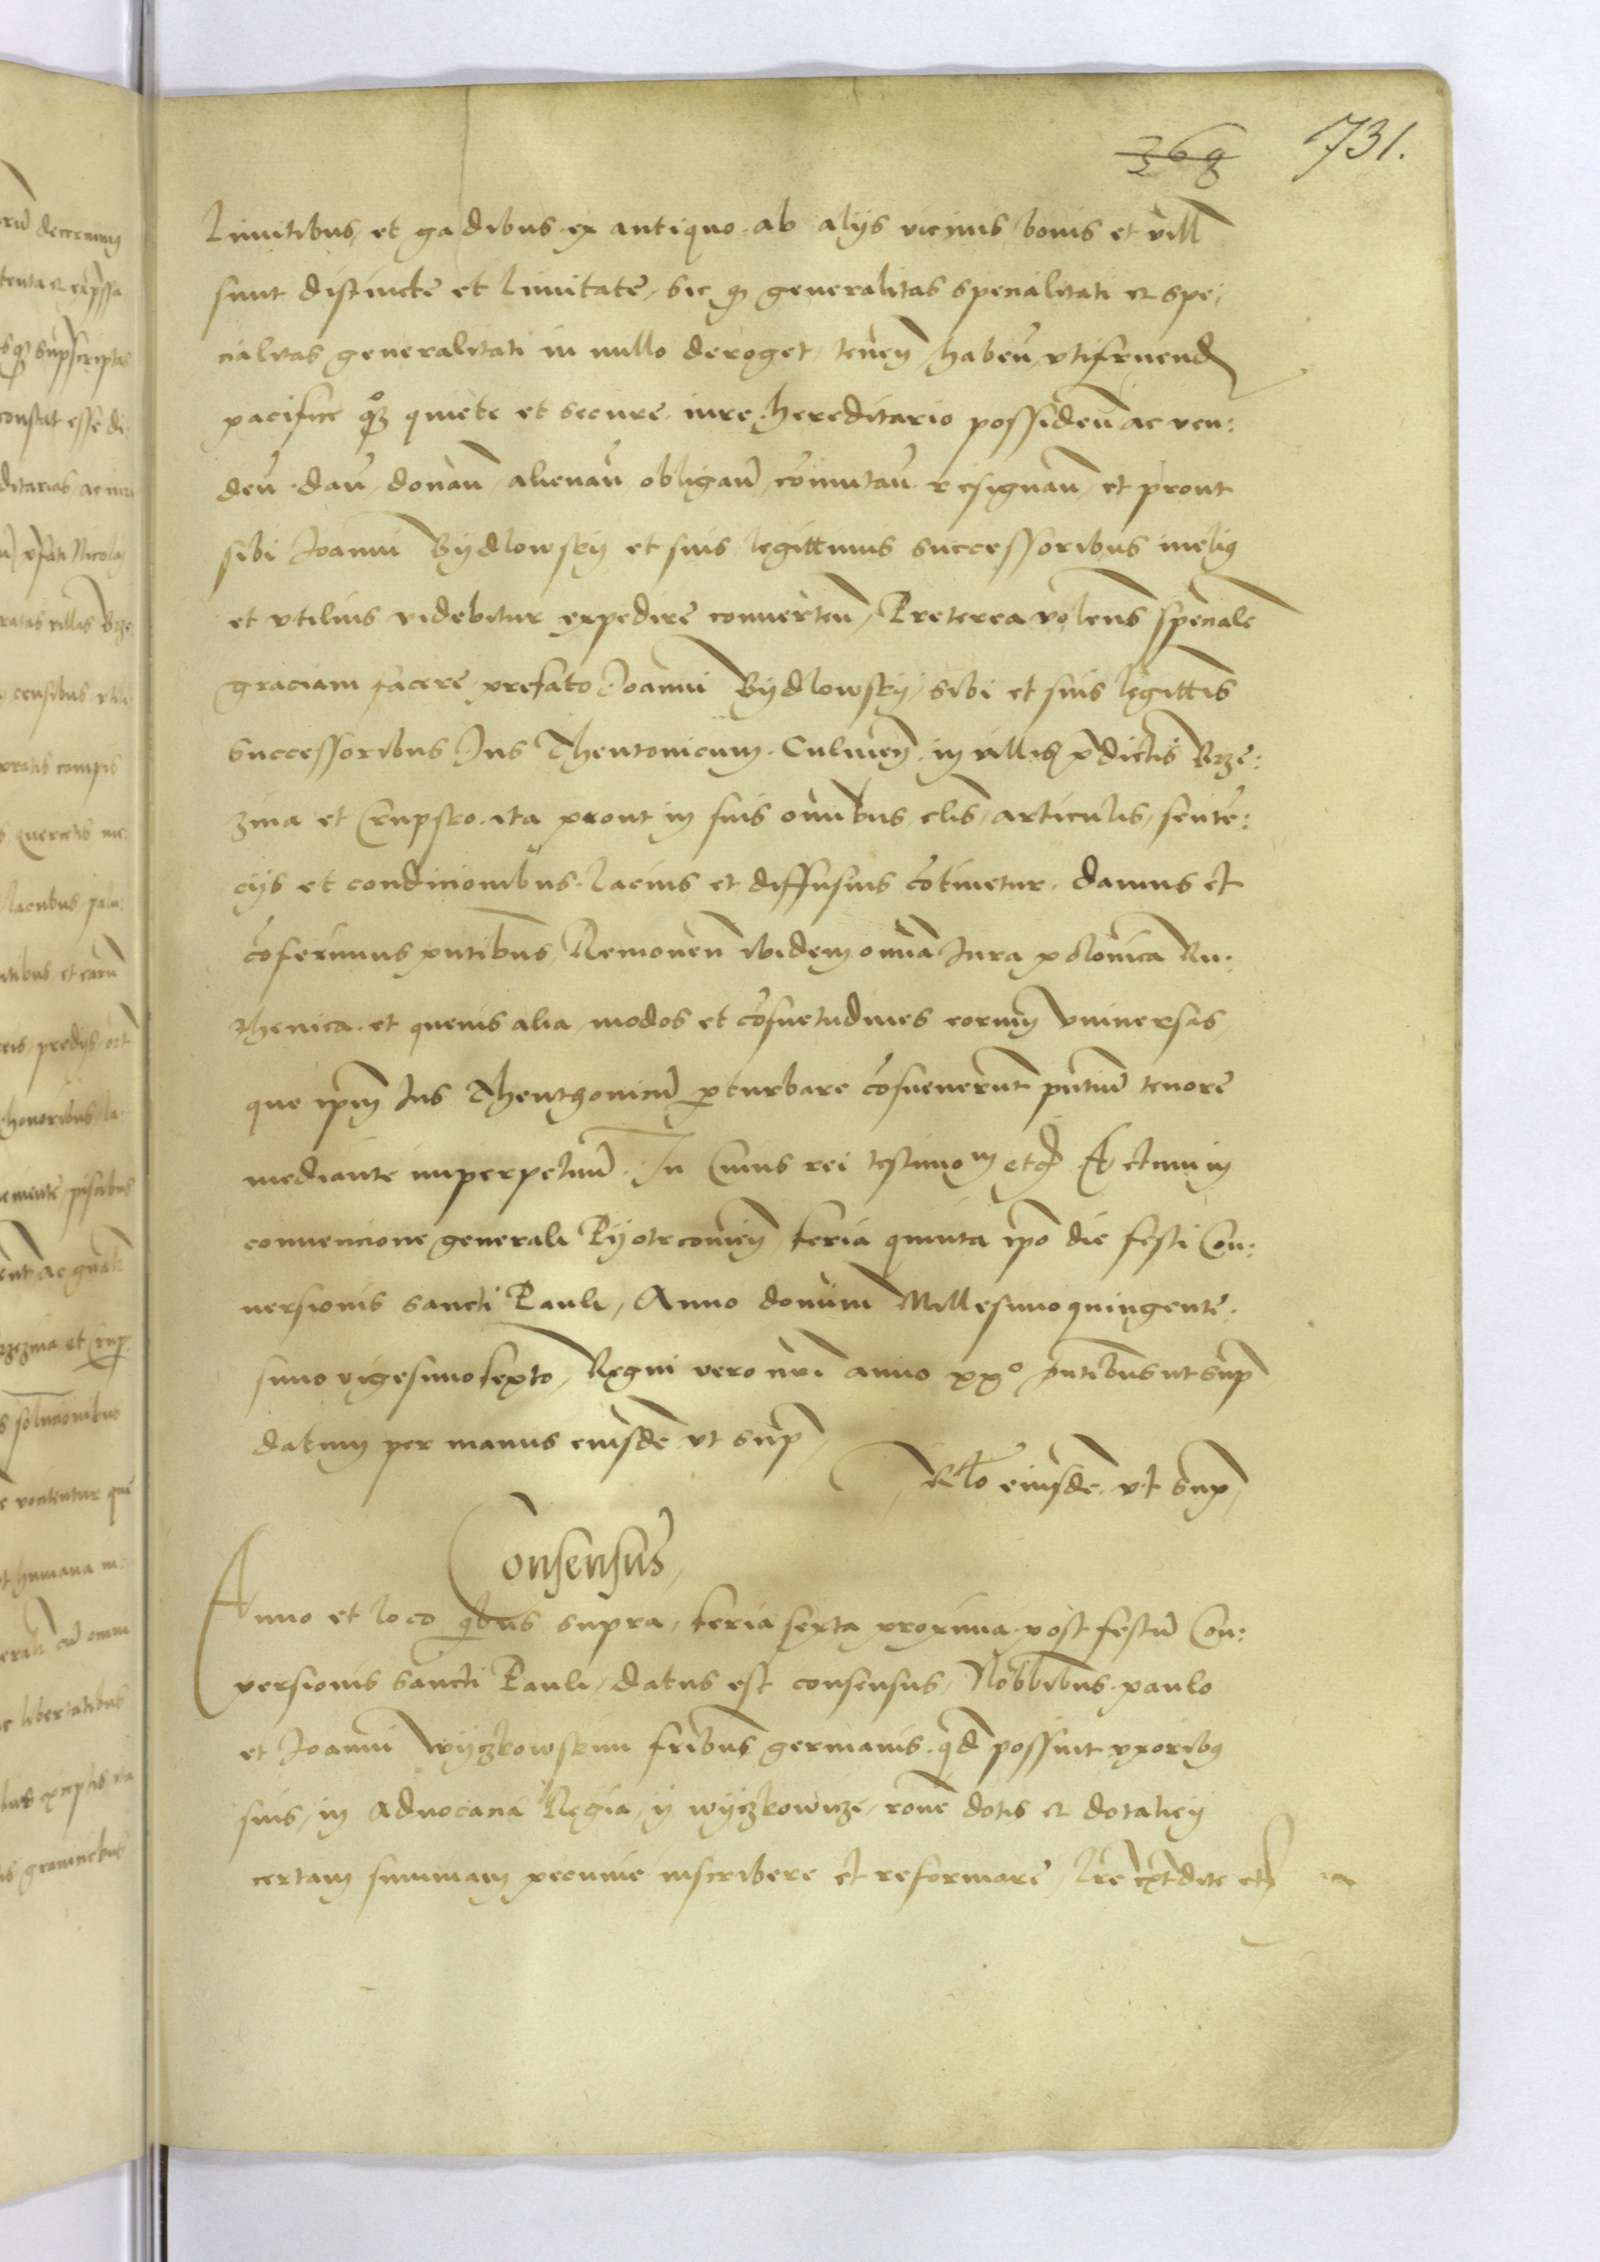 368 731.
limitibus et gadibus ex antiquo ab alijs vicinis bonis et vill
sunt distincte et limitate, sic q generalitas specialitati et spe,
cialitas generalitati in nullo deroget, teneñ habeñ vtifruend
pacifice q3 quiete et secure iure hereditario possideñ ac ven:
deñ dañ, donañ, alienañ obligañ, cōmutañ resignañ, et prout
sibi Joanni Bydlowsky et suis legittimis successoribus meliq
et vtilius videbitur expedire conuerteñ, Preterea volens speciale
graciam facere prefato Joanni Bydlowsky, sibi et suis legittis
successoribus Jus Theutonicum Culmeñ in villis pdictis Brze:
zina et Crupsko ita prout in suis omibus, clis, articulis, senteˉ:
cijs et condicionibus lacius et diffusius cōtinetur damus et
cōferimus pntibus, Remoueñ ibidem omnia Jura polonica Ru:
thenica et queuis alia, modos et cōsuetudines eorum vniuersas,
que ipm Jus Theutgonicū pturbare cōsueuerunt pntiū tenore
mediante imperpetuū. In Cuius rei testimom etc Actum in
conuencione generali Pyotrcouieñ feria quinta ipo die festi Con:
uersionis sancti Pauli, Anno domini Millesimo quingente:
simo vigesimosexto, Regni vero nri anno xx° pntibus ut sup
datum per manus eiusde vt sup,
Rlo eiusde vt sup,
Consensus,
Anno et loco qbus supra, feria sexta proxima post festū Con:
versionis sancti Pauli, datus est consensus, Nobbibus paulo
et Joanni wyczkowskim fribus germanis qd possint vxoribq
suis, in aduocacia Regia, in wyczkowicze, rone dotis et dotalicij
certam summam pecunie inscribere et reformare, lre extdite etc